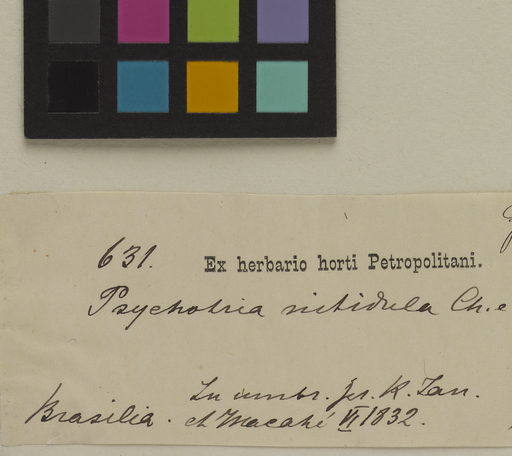 631. Ex herbario horti Petropolitani.
Psychotria nitidula Ch. e
In umbr. fr. K. Jan.
Brasilia. et Macahé VI 1832.